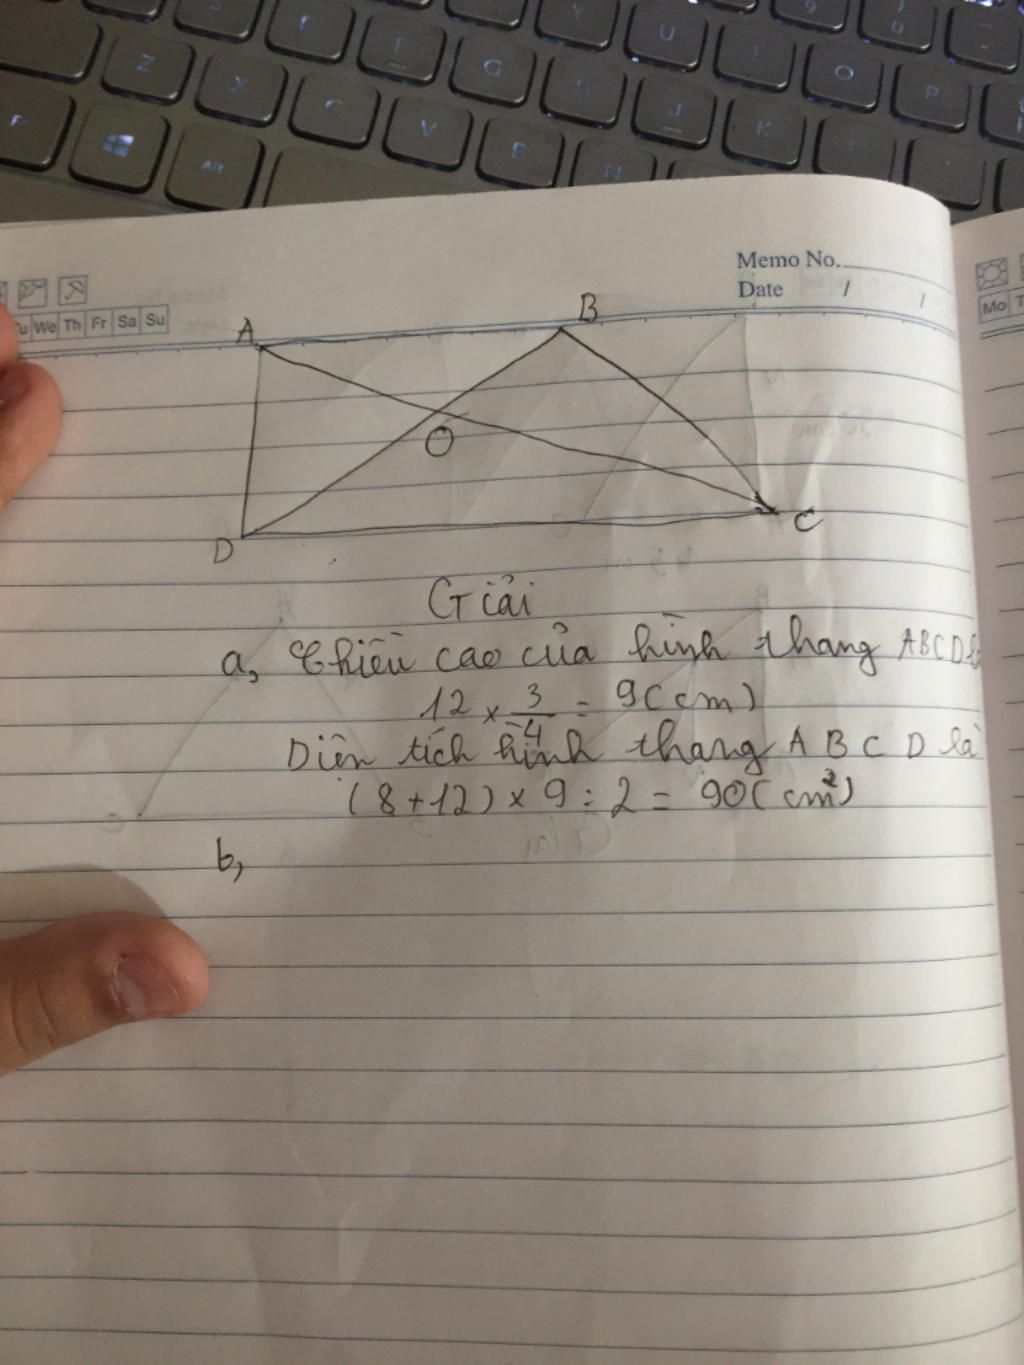 Y U I O P
Z X C V B N
G H J K
Alt
Memo No.
Date / /
We Th Fr Sa Su
Mo
A B
O
D C
Giải
a, Chiều cao của hình thang ABCD là
12 × 3/4 = 9 (cm)
Diện tích hình thang A B C D là
(8 + 12) × 9 : 2 = 90 (cm²)
b,